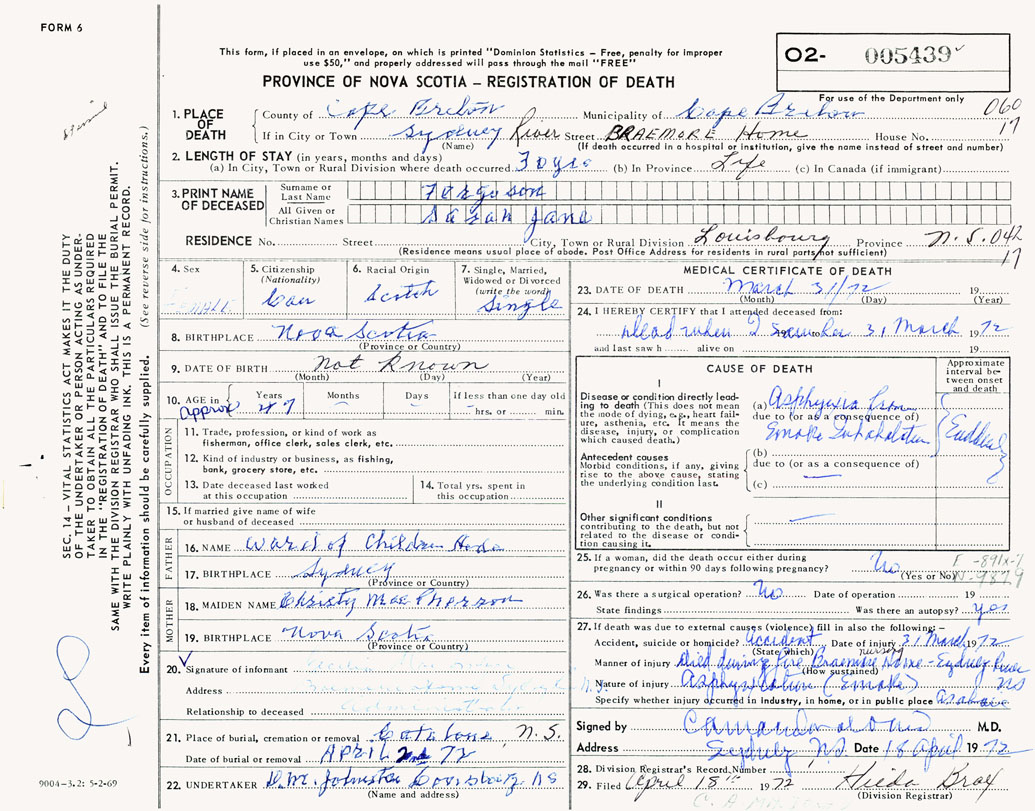 FORM 6
This form, if placed in an envelope, on which is printed "Dominion Statistics – Free, penalty for improper
use $50," and properly addressed will pass through the mail "FREE"
PROVINCE OF NOVA SCOTIA – REGISTRATION OF DEATH
02- 005439
For use of the Department only
060
17
1. PLACE OF DEATH County of Cape Breton Municipality of Cape Breton
If in City or Town Sydney River Street BRAEMORE Home House No.
(Name) (If death occurred in a hospital or institution, give the name instead of street and number)
2. LENGTH OF STAY (in years, months and days)
(a) In City, Town or Rural Division where death occurred 30 yrs (b) In Province Life (c) In Canada (if immigrant)
3. PRINT NAME OF DECEASED Surname or Last Name Ferguson
All Given or Christian Names Sarah Jane
RESIDENCE No. Street City, Town or Rural Division Louisbourg Province N.S. 042
17
(Residence means usual place of abode. Post Office Address for residents in rural parts not sufficient)
4. Sex FEMALE
5. Citizenship (Nationality) Can
6. Racial Origin Scotch
7. Single, Married, Widowed or Divorced (write the word) Single
8. BIRTHPLACE Nova Scotia
(Province or Country)
9. DATE OF BIRTH Not Known
(Month) (Day) (Year)
10. AGE in Years Months Days If less than one day old
Approx hrs. or min.
OCCUPATION
11. Trade, profession, or kind of work as fisherman, office clerk, sales clerk, etc.
12. Kind of industry or business, as fishing, bank, grocery store, etc.
13. Date deceased last worked at this occupation
14. Total yrs. spent in this occupation
15. If married give name of wife or husband of deceased
FATHER
16. NAME Ward of Children
17. BIRTHPLACE Sydney
(Province or Country)
MOTHER
18. MAIDEN NAME Christy MacPherson
19. BIRTHPLACE Nova Scotia
(Province or Country)
20. Signature of informant
Address
Relationship to deceased Administrator
21. Place of burial, cremation or removal Catalone, N.S.
Date of burial or removal APRIL 2nd 72
22. UNDERTAKER D.M. Johnston Louisbourg NS
(Name and address)
MEDICAL CERTIFICATE OF DEATH
23. DATE OF DEATH March 31/72 19
(Month) (Day) (Year)
24. I HEREBY CERTIFY that I attended deceased from:
Dead when I saw her 31 March 1972
and last saw h alive on 19
CAUSE OF DEATH
Approximate interval between onset and death
I
Disease or condition directly leading to death (This does not mean the mode of dying, e.g., heart failure, asthenia, etc. It means the disease, injury, or complication which caused death.)
(a) Asphyxia from
due to (or as a consequence of)
Smoke Inhalation
Sudden
Antecedent causes
Morbid conditions, if any, giving rise to the above cause, stating the underlying condition last.
(b)
due to (or as a consequence of)
(c)
II
Other significant conditions
contributing to the death, but not related to the disease or condition causing it.
25. If a woman, did the death occur either during
pregnancy or within 90 days following pregnancy? No
(Yes or No)
N-9879
26. Was there a surgical operation? No Date of operation 19
State findings Was there an autopsy? yes
27. If death was due to external causes (violence) fill in also the following:–
Accident, suicide or homicide? Accident Date of injury 31 March 1972
(State which) nursing
Manner of injury Died during fire Braemore Home - Sydney River
(How sustained) NS
Nature of injury Asphyxiation (smoke)
Specify whether injury occurred in industry, in home, or in public place as above
Signed by M.D.
Address Sydney NS Date 18 April 1972
28. Division Registrar's Record Number
29. Filed April 18th 1972 Hilda Bray
(Division Registrar)
SEC. 14 – VITAL STATISTICS ACT MAKES IT THE DUTY
OF THE UNDERTAKER OR PERSON ACTING AS UNDER-
TAKER TO OBTAIN ALL THE PARTICULARS REQUIRED
IN THE "REGISTRATION OF DEATH" AND TO FILE THE
SAME WITH THE DIVISION REGISTRAR WHO SHALL ISSUE THE BURIAL PERMIT.
WRITE PLAINLY WITH UNFADING INK. THIS IS A PERMANENT RECORD.
Every item of information should be carefully supplied. (See reverse side for instructions.)
9004-3.2: 5-2-69